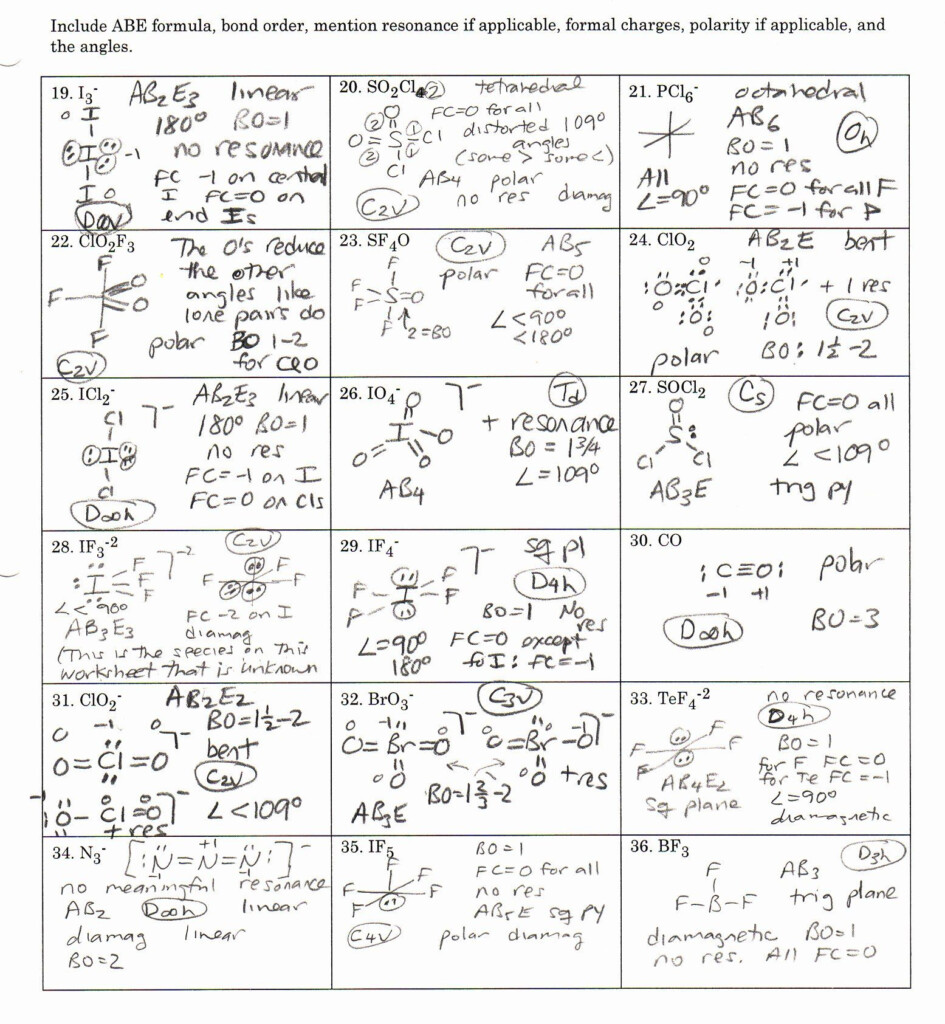 Include ABE formula, bond order, mention resonance if applicable, formal charges, polarity if applicable, and
the angles.
19. I₃⁻ AB₂E₃ linear
180° BO=1
no resonance
FC -1 on central
I FC=0 on
end Is
0 I
I -1
I 0
20. SO₂Cl₂ tetrahedral
FC=0 for all
distorted 109°
angles
(some > some <)
AB4 polar
no res diamag
O=S-Cl
O
Cl
C2V
21. PCl₆⁻ octahedral
AB6
BO=1
no res
FC=0 for all F
FC=-1 for P
Oh
All
∠=90°
22. ClO₂F₃ The O's reduce
the other
angles like
lone pairs do
polar BO 1-2
for ClO
F
F O
O
F
C2V
23. SF₄O C2V AB5
polar FC=0
for all
F
F-S=O
F
F 2=BO
∠<90°
<180°
24. ClO₂ AB2E bent
-1 +1
:O=Cl· :O:Cl· + 1 res
:O: :O:
C2V
polar BO: 1½-2
25. ICl₂⁻ AB2E3 linear
180° BO=1
no res
FC=-1 on I
FC=0 on Cls
Cl
I
Cl
D∞h
26. IO₄⁻ Td
+ resonance
BO = 1¾
∠=109°
O
I-O
O O
AB4
27. SOCl₂ Cs FC=0 all
polar
∠<109°
O
S:
Cl Cl
AB3E trig py
28. IF₃⁻² C2V
:I-F
F
F
F F
∠<90°
FC-2 on I
AB3E3 diamag
(This is the species on this
worksheet that is unknown
29. IF₄⁻ sq pl
D4h
F F
I
F F
BO=1 No
res
∠=90° FC=0 except
180° for I: FC=-1
30. CO
:C≡O: polar
-1 +1
D∞h BO=3
31. ClO₂⁻ AB2E2
BO=1½-2
bent
C2V
0 -1 0
O=Cl=O
-1 0 0
:O-Cl=O
∠<109°
+ res
32. BrO₃⁻ C3V
0 -1 0
O=Br=O O=Br-O
O O
+res
BO=1⅔-2
AB3E
33. TeF₄⁻² no resonance
D4h
BO=1
for F FC=0
for Te FC=-1
∠=90°
diamagnetic
F F
F F
AB4E2
sq plane
34. N₃⁻ [:N=N=N:]⁻
+1
-1 -1
no meaningful resonance
AB2 D∞h linear
diamag linear
BO=2
35. IF₅ BO=1
FC=0 for all
no res
AB5E sq py
F
F F
F F
C4V polar diamag
36. BF₃ AB3 D3h
trig plane
F
F-B-F
diamagnetic BO=1
no res. All FC=0